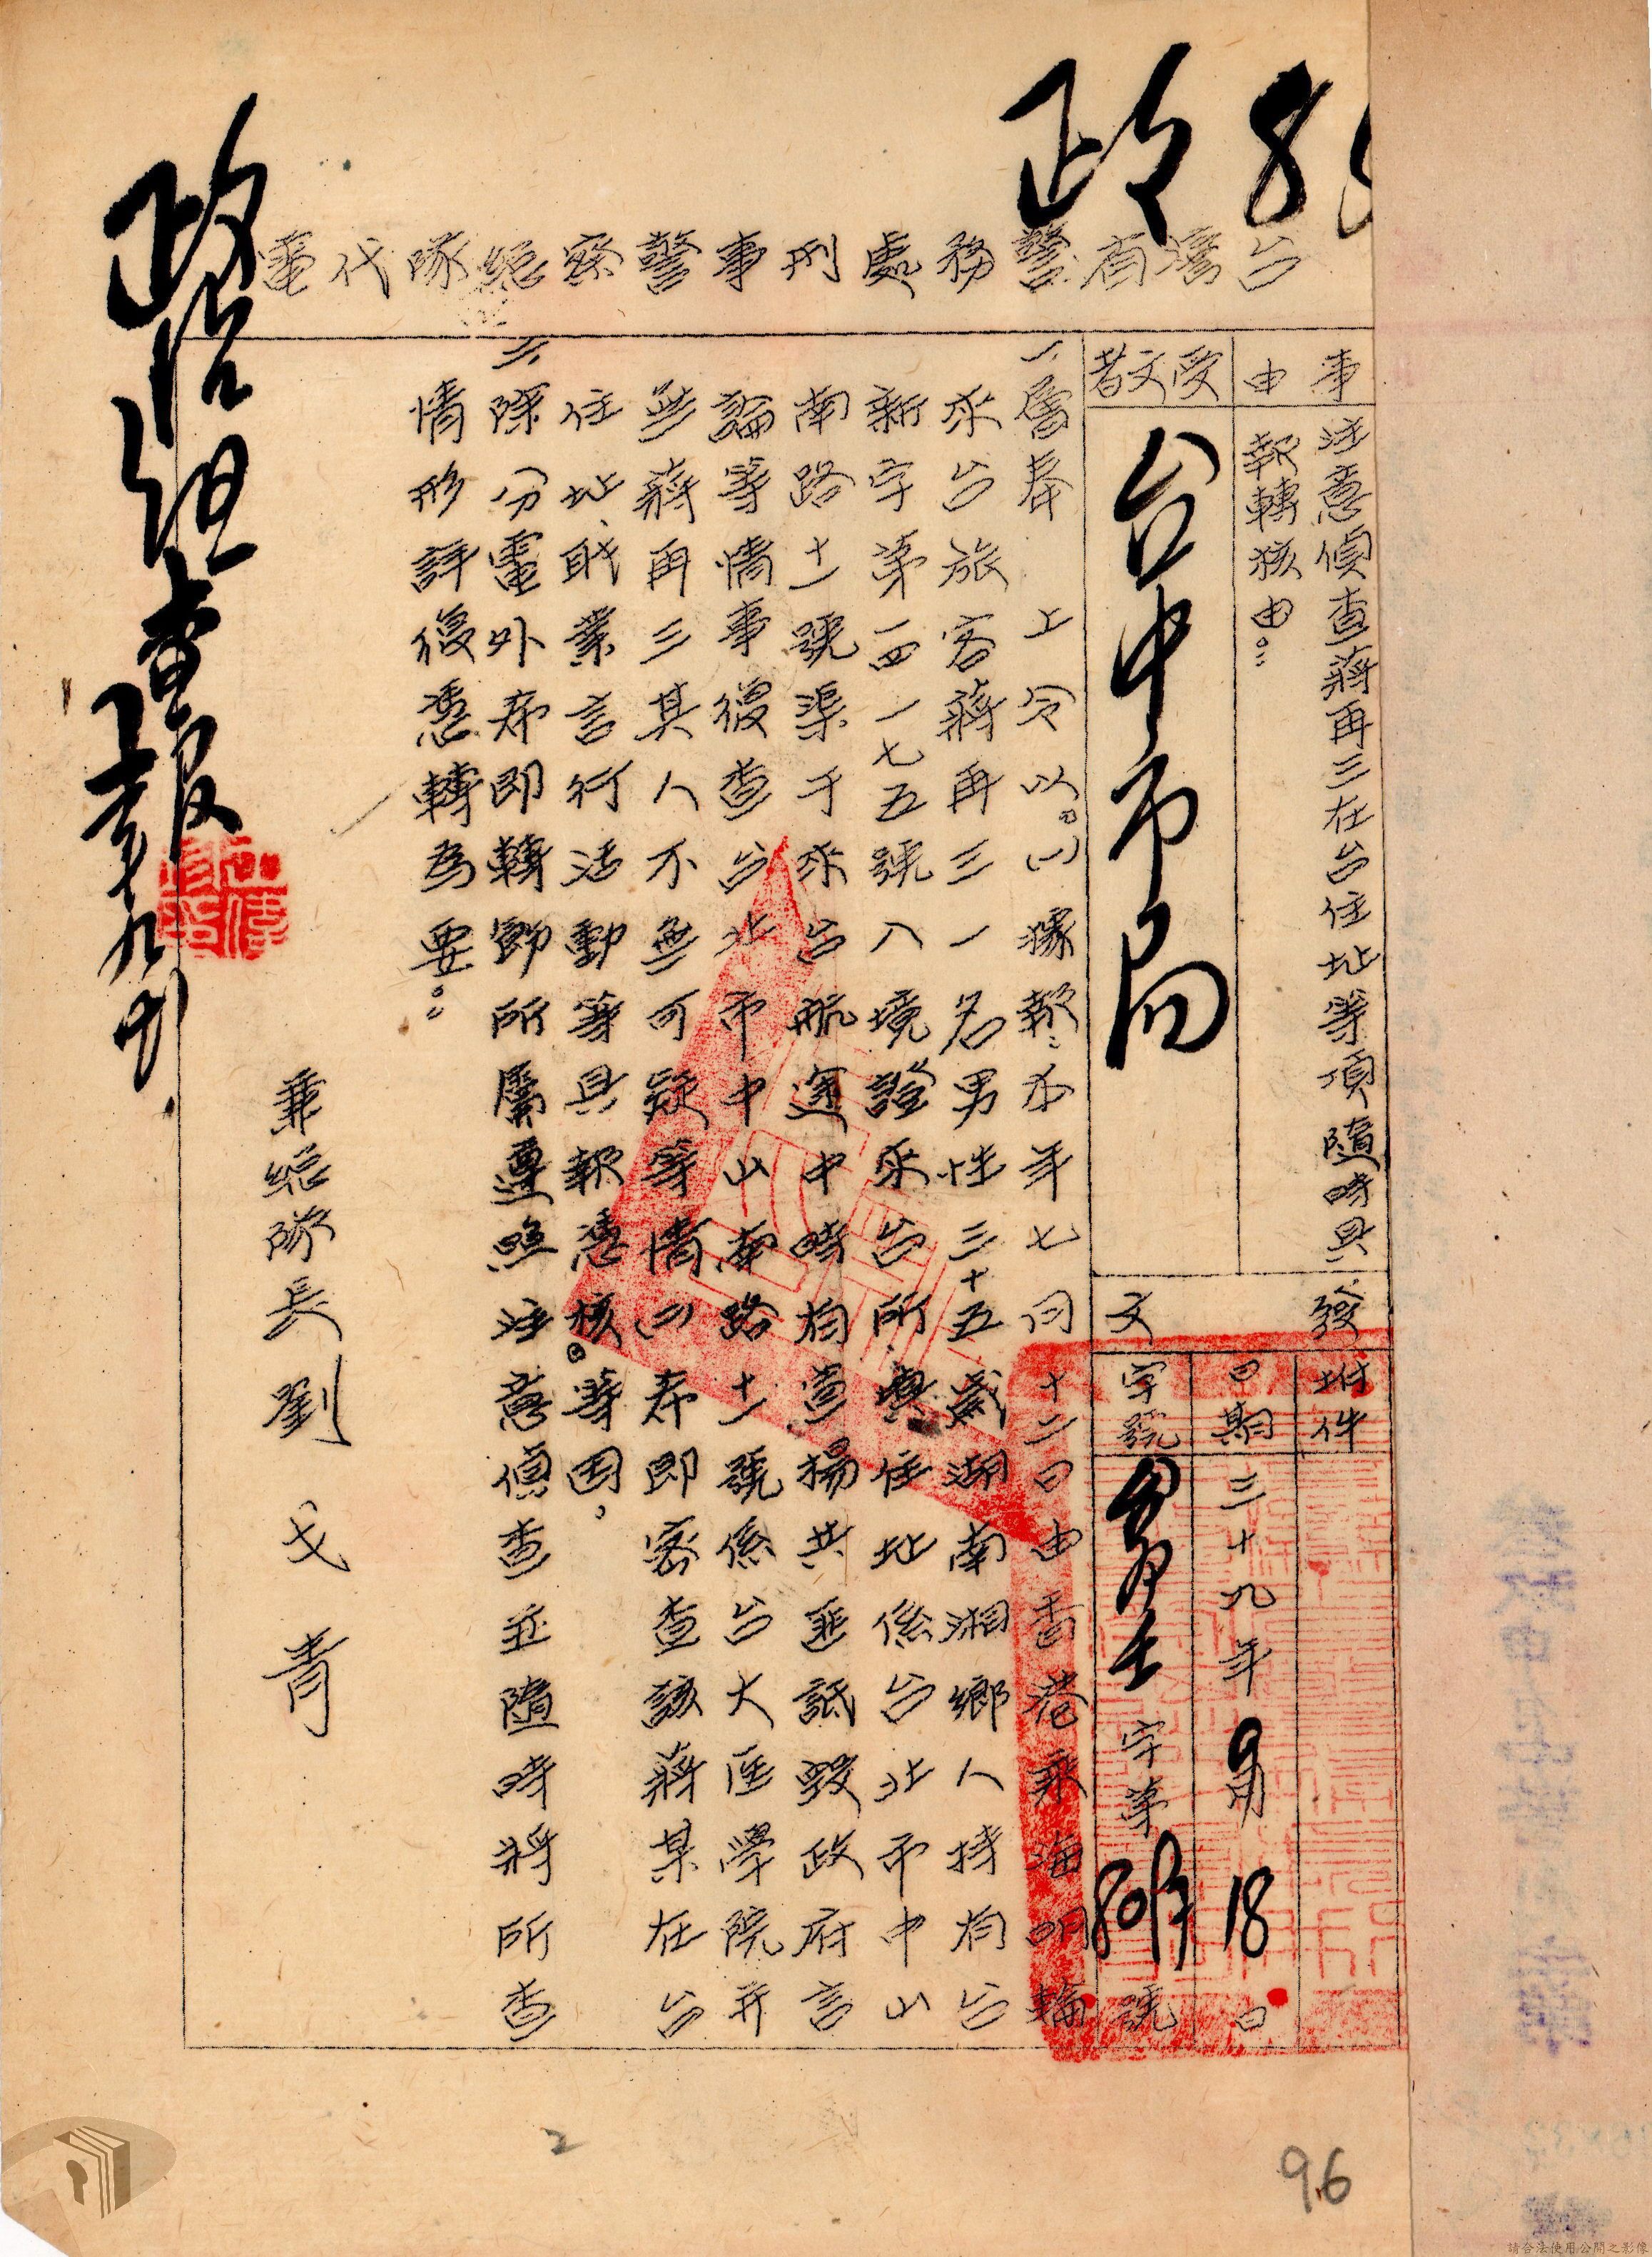 政
台灣省警務處刑事警察總隊代電
事由
注意偵查蔣再三在台住址等項隨時具
報轉核由。
受文者
台中市局
發文
附件
日期
三十九年9月18日
字號
字第
號
一、層奉 上令以。㈠據報:本年七月十二日由香港乘海明輪
來台旅客蔣再三一名男性三十五歲湖南湘鄉人持有台
新字第一四一七五號入境證來台所填住址係台北市中山
南路十一號渠于來台航運中時有宣揚共匪詆毀政府言
論等情事後查台北市中山南路十一號係台大醫學院并
無蔣再三其人不無可疑等情㈡希即密查該蔣某在台
住址、職業言行活動等具報憑核。等因,
二、除分電外希即轉飭所屬遵照注意偵查並隨時將所查
情形詳復憑轉為要。
兼總隊長劉戈青
政治組查報
96
2
請合法使用公開之影像